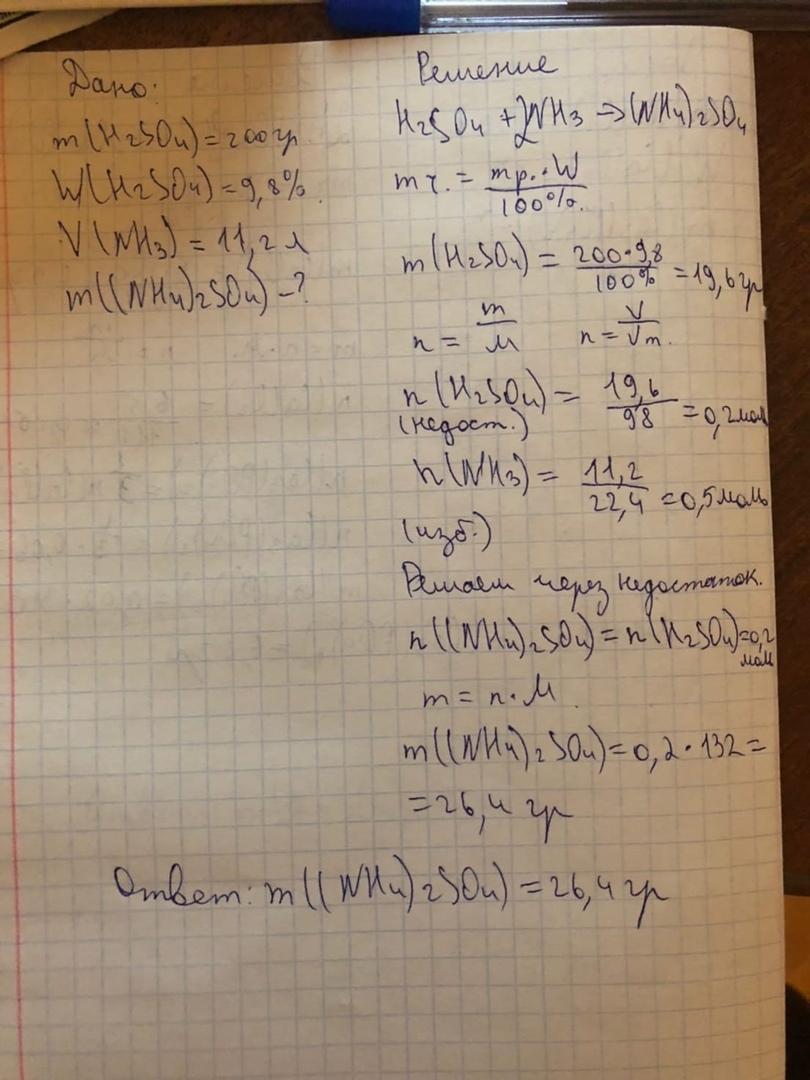 Дано:
m(H2SO4)=200гр
W(H2SO4)=9,8%.
V(NH3)=11,2л
m((NH4)2SO4)-?
Решение
H2SO4+2NH3->(NH4)2SO4
mч.=mр.·W/100%.
m(H2SO4)=200·9,8/100%=19,6гр
n=m/M n=V/Vm.
n(H2SO4)=19,6/98=0,2мол
(недост.)
n(NH3)=11,2/22,4=0,5моль
(изб.)
Решаем через недостаток.
n((NH4)2SO4)=n(H2SO4)=0,2
мол
m=n·M.
m((NH4)2SO4)=0,2·132=
=26,4 гр
Ответ: m((NH4)2SO4)=26,4гр